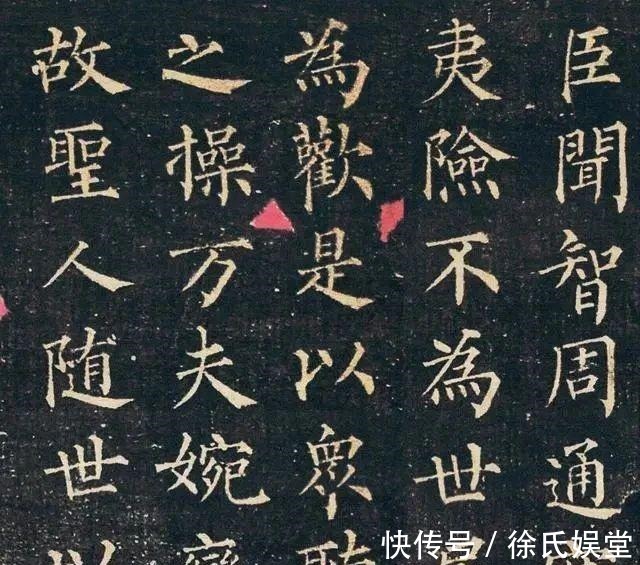 臣聞智周通
夷險不為世
為歡是以眾
之操万夫婉
故聖人随世
快传号/徐氏娱堂